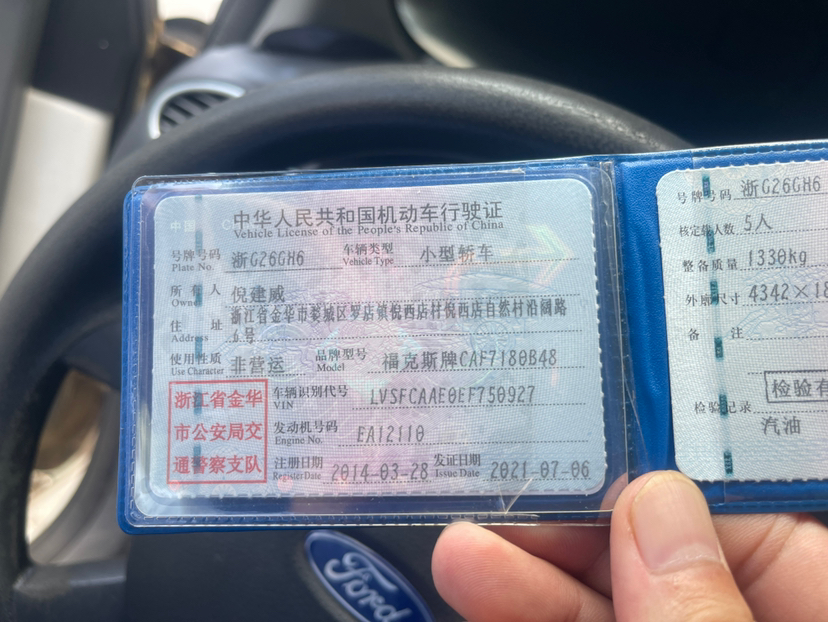 中华人民共和国机动车行驶证
Vehicle License of the People's Republic of China
号牌号码 浙G26GH6 车辆类型 小型轿车
Plate No. Vehicle Type
所有人 倪建威
Owner
浙江省金华市婺城区罗店镇悦西店村悦西店自然村沿阔路
住址 6号
Address
使用性质 非营运 品牌型号 福克斯牌CAF7180B48
Use Character Model
浙江省金华
市公安局交
通警察支队
车辆识别代号 LVSFCAAE0EF750927
VIN
发动机号码 EA12110
Engine No.
注册日期 2014-03-28 发证日期 2021-07-06
Register Date Issue Date
号牌号码 浙G26GH6
核定载人数 5人
整备质量 1330kg
外廓尺寸 4342×18
备注
检验有
检验记录
汽油
Ford